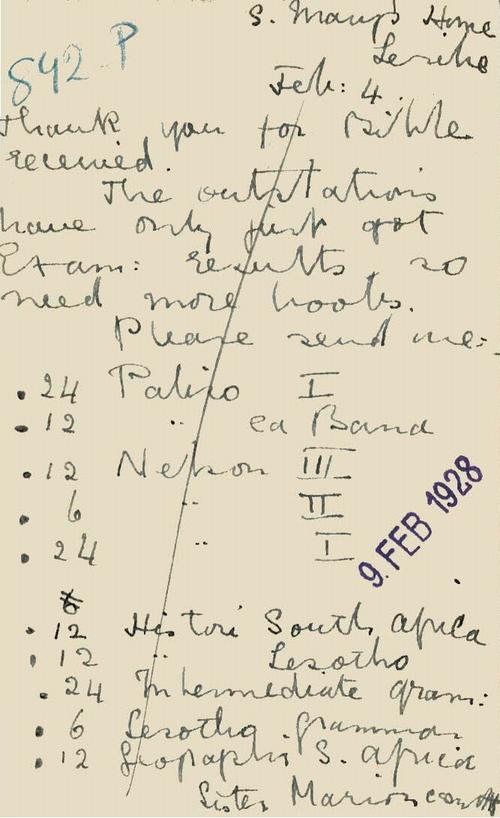 S. Mary's Home
Leribe
Feb: 4.
842 P
Thank you for Bible
received.
The outstations
have only just got
Exam: results, so
need more books.
Please send me:-
. 24 Paliso I
. 12 " ea Bana
. 12 Nelson III
. 6 " II
. 24 " I
9. FEB 1928
. 12 Histori South Africa
. 12 " Lesotho
. 24 Intermediate gram:
. 6 Lesotho grammar
. 12 Geographi S. Africa
Sister Marion